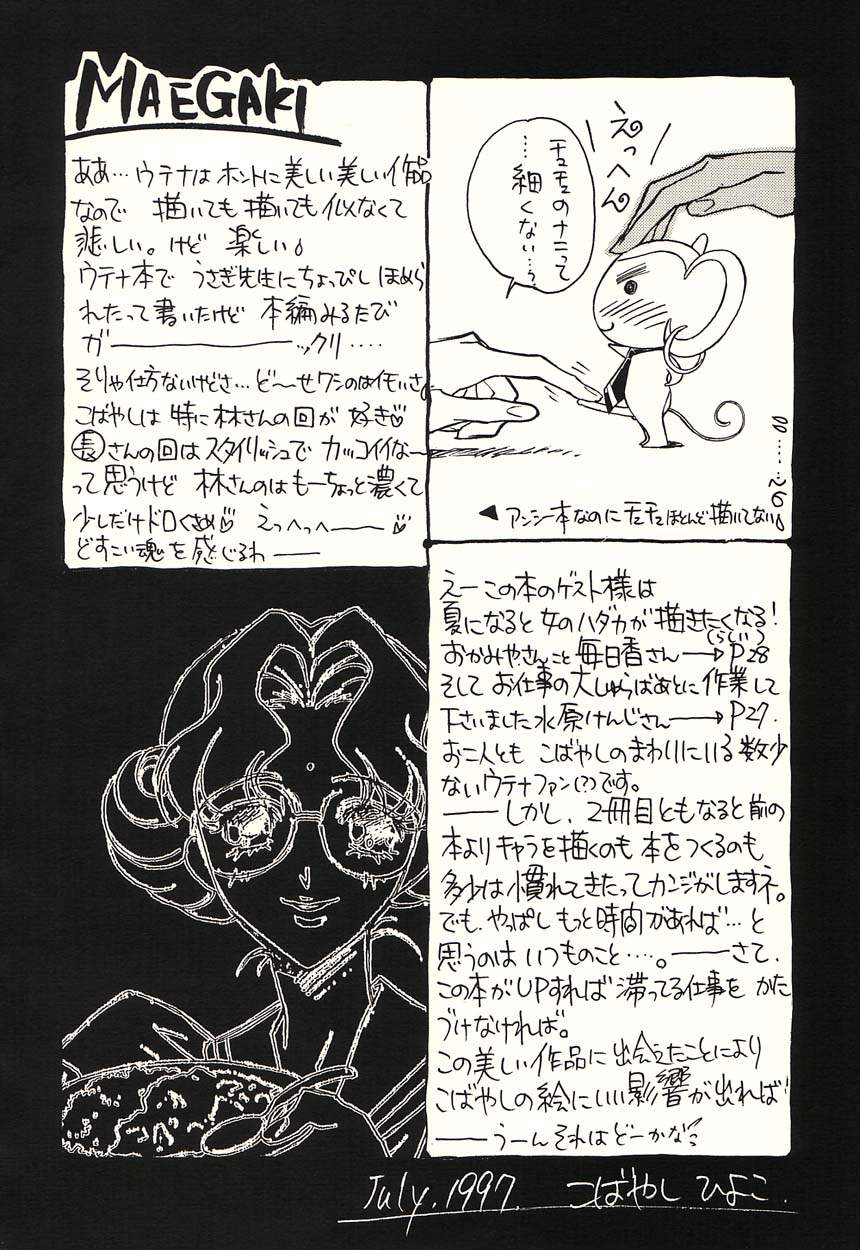 MAEGAKI
ああ…ウテナはホントに美しい美しい作品
なので 描いても描いても似なくて
悲しい。けど 楽しい♪
ウテナ本で うさぎ先生にちょっぴし ほめら
れたって書いたけど 本編みるたび
ガ――――――ックリ‥‥
そりゃ仕方ないけどさ…ど〜せワシのはイモいさ。
こばやしは 特に林さんの回が 好き♡
長さんの回は スタイリッシュで カッコイイな〜
って思うけど 林さんのはもーちょっと濃くて
少しだけドロくさめ♡ えっへっへ―― ♡
どすこい魂を感じるわ――
えっへん
チュチュのナニって
…細くない…?
◀アンシー本なのにチュチュほとんど描いてない
えー この本のゲスト様は
夏になると 女のハダカが 描きたくなる!
おかみやさんこと 毎日香さん→P28
そして お仕事の大しゅらばあとに 作業して
下さいました 水原けんじさん→P27.
お二人とも こばやしのまわりにいる 数少
ないウテナファン(?)です。
――しかし、2冊目ともなると 前の
本より キャラを描くのも 本をつくるのも
多少は 慣れてきたってカンジがしますネ。
でも、やっぱし もっと時間があれば…と
思うのは いつものこと‥‥。――さて、
この本がUPすれば 滞ってる仕事を かた
づけなければ。
この美しい作品に 出会えたことにより
こばやしの絵にいい影響が出れば!
――うーん それはどーかな?
July.1997. こばやし ひよこ.